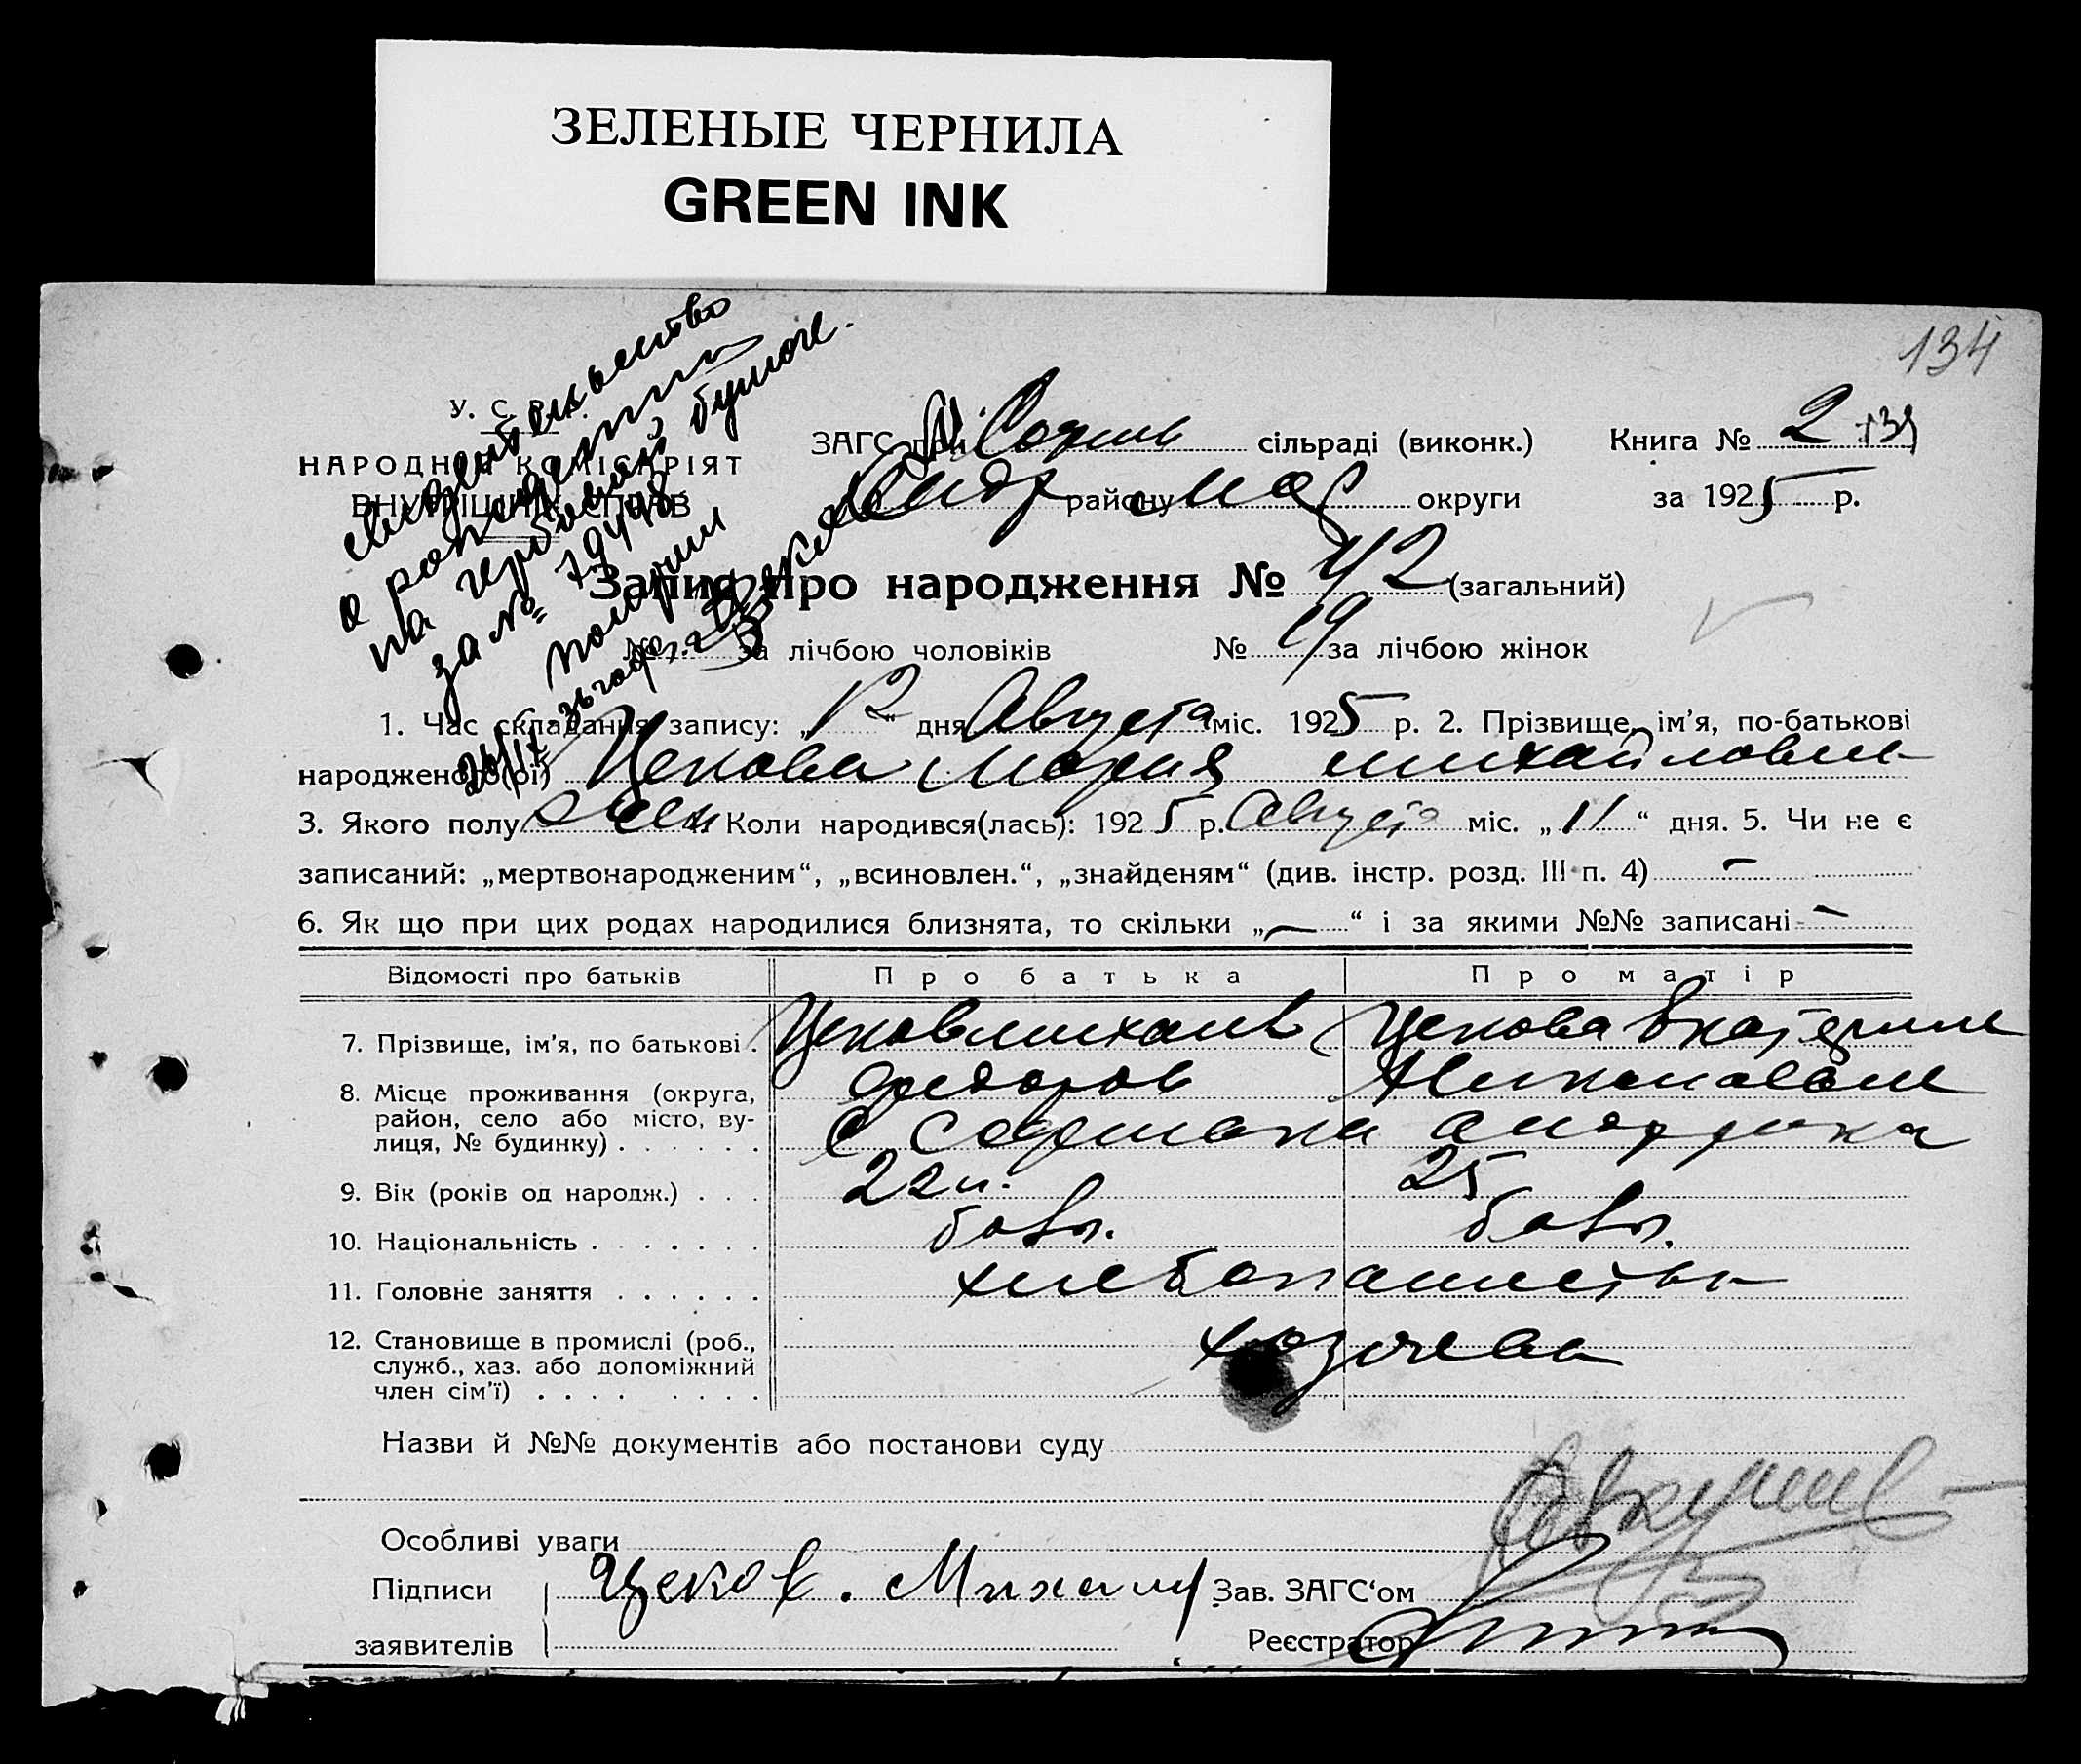 ЗЕЛЕНЫЕ ЧЕРНИЛА
GREEN INK
134
свидетельство
о рождении
на гербовой бумаге.
за № 79498
получил
У. С. Р. Р.
НАРОДНИЙ КОМІСАРІЯТ
ВНУТРІШНІХ СПРАВ
ЗАГС при сільраді (виконк.) Книга № 2
району округи за 1925 р.
Запис про народження № 42 (загальний)
№ за лічбою чоловіків № 19 за лічбою жінок
1. Час складання запису: „12“ дня Августа міс. 1925 р. 2. Прізвище, ім’я, по-батькові
народженого(ої) Цекова Мария Михайловна
3. Якого полу жен 4. Коли народився(лась): 1925 р. Августа міс. „11“ дня. 5. Чи не є
записаний: „мертвонародженим“, „всиновлен.“, „знайденям“ (див. інстр. розд. III п. 4) —
6. Як що при цих родах народилися близнята, то скільки „—“ і за якими №№ записані —
Відомості про батьків Про батька Про матір
7. Прізвище, ім’я, по батькові . Цеков Михаил Цекова Екатерина
Федоров Николаевна
8. Місце проживання (округа,
район, село або місто, ву-
лиця, № будинку) . . . . . . С Софиевка Андровка
9. Вік (років од народж.) . . . 22 25
10. Національність . . . . . . . болг. болг.
11. Головне заняття . . . . . . хлебопашество
12. Становище в промислі (роб.,
служб., хаз. або допоміжний
член сім’ї) . . . . . . . . хозяева
Назви й №№ документів або постанови суду
Особливі уваги
Підписи Цеков. Михаил Зав. ЗАГС‘ом
заявителів Реєстратор